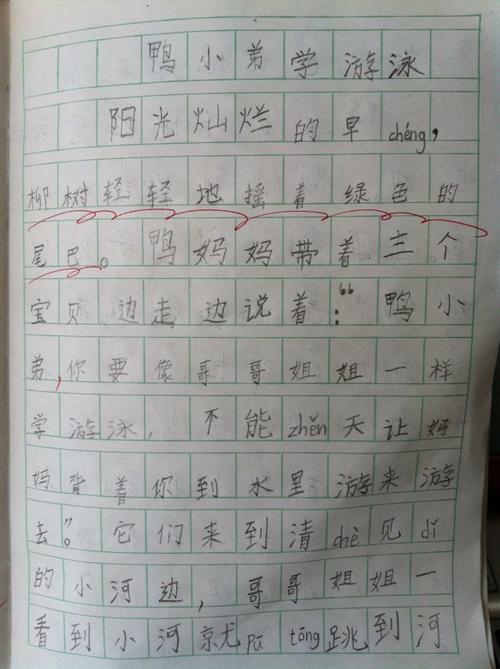 鸭小弟学游泳
阳光灿烂的早chéng，
柳树轻轻地摇着绿色的
尾巴。鸭妈妈带着三个
宝贝边走边说着：“鸭小
弟，你要像哥哥姐姐一样
学游泳，不能zhěn天让妈
妈背着你到水里游来游
去”。它们来到清chè见dǐ
的小河边，哥哥姐姐一
看到小河就pū tōng跳到河